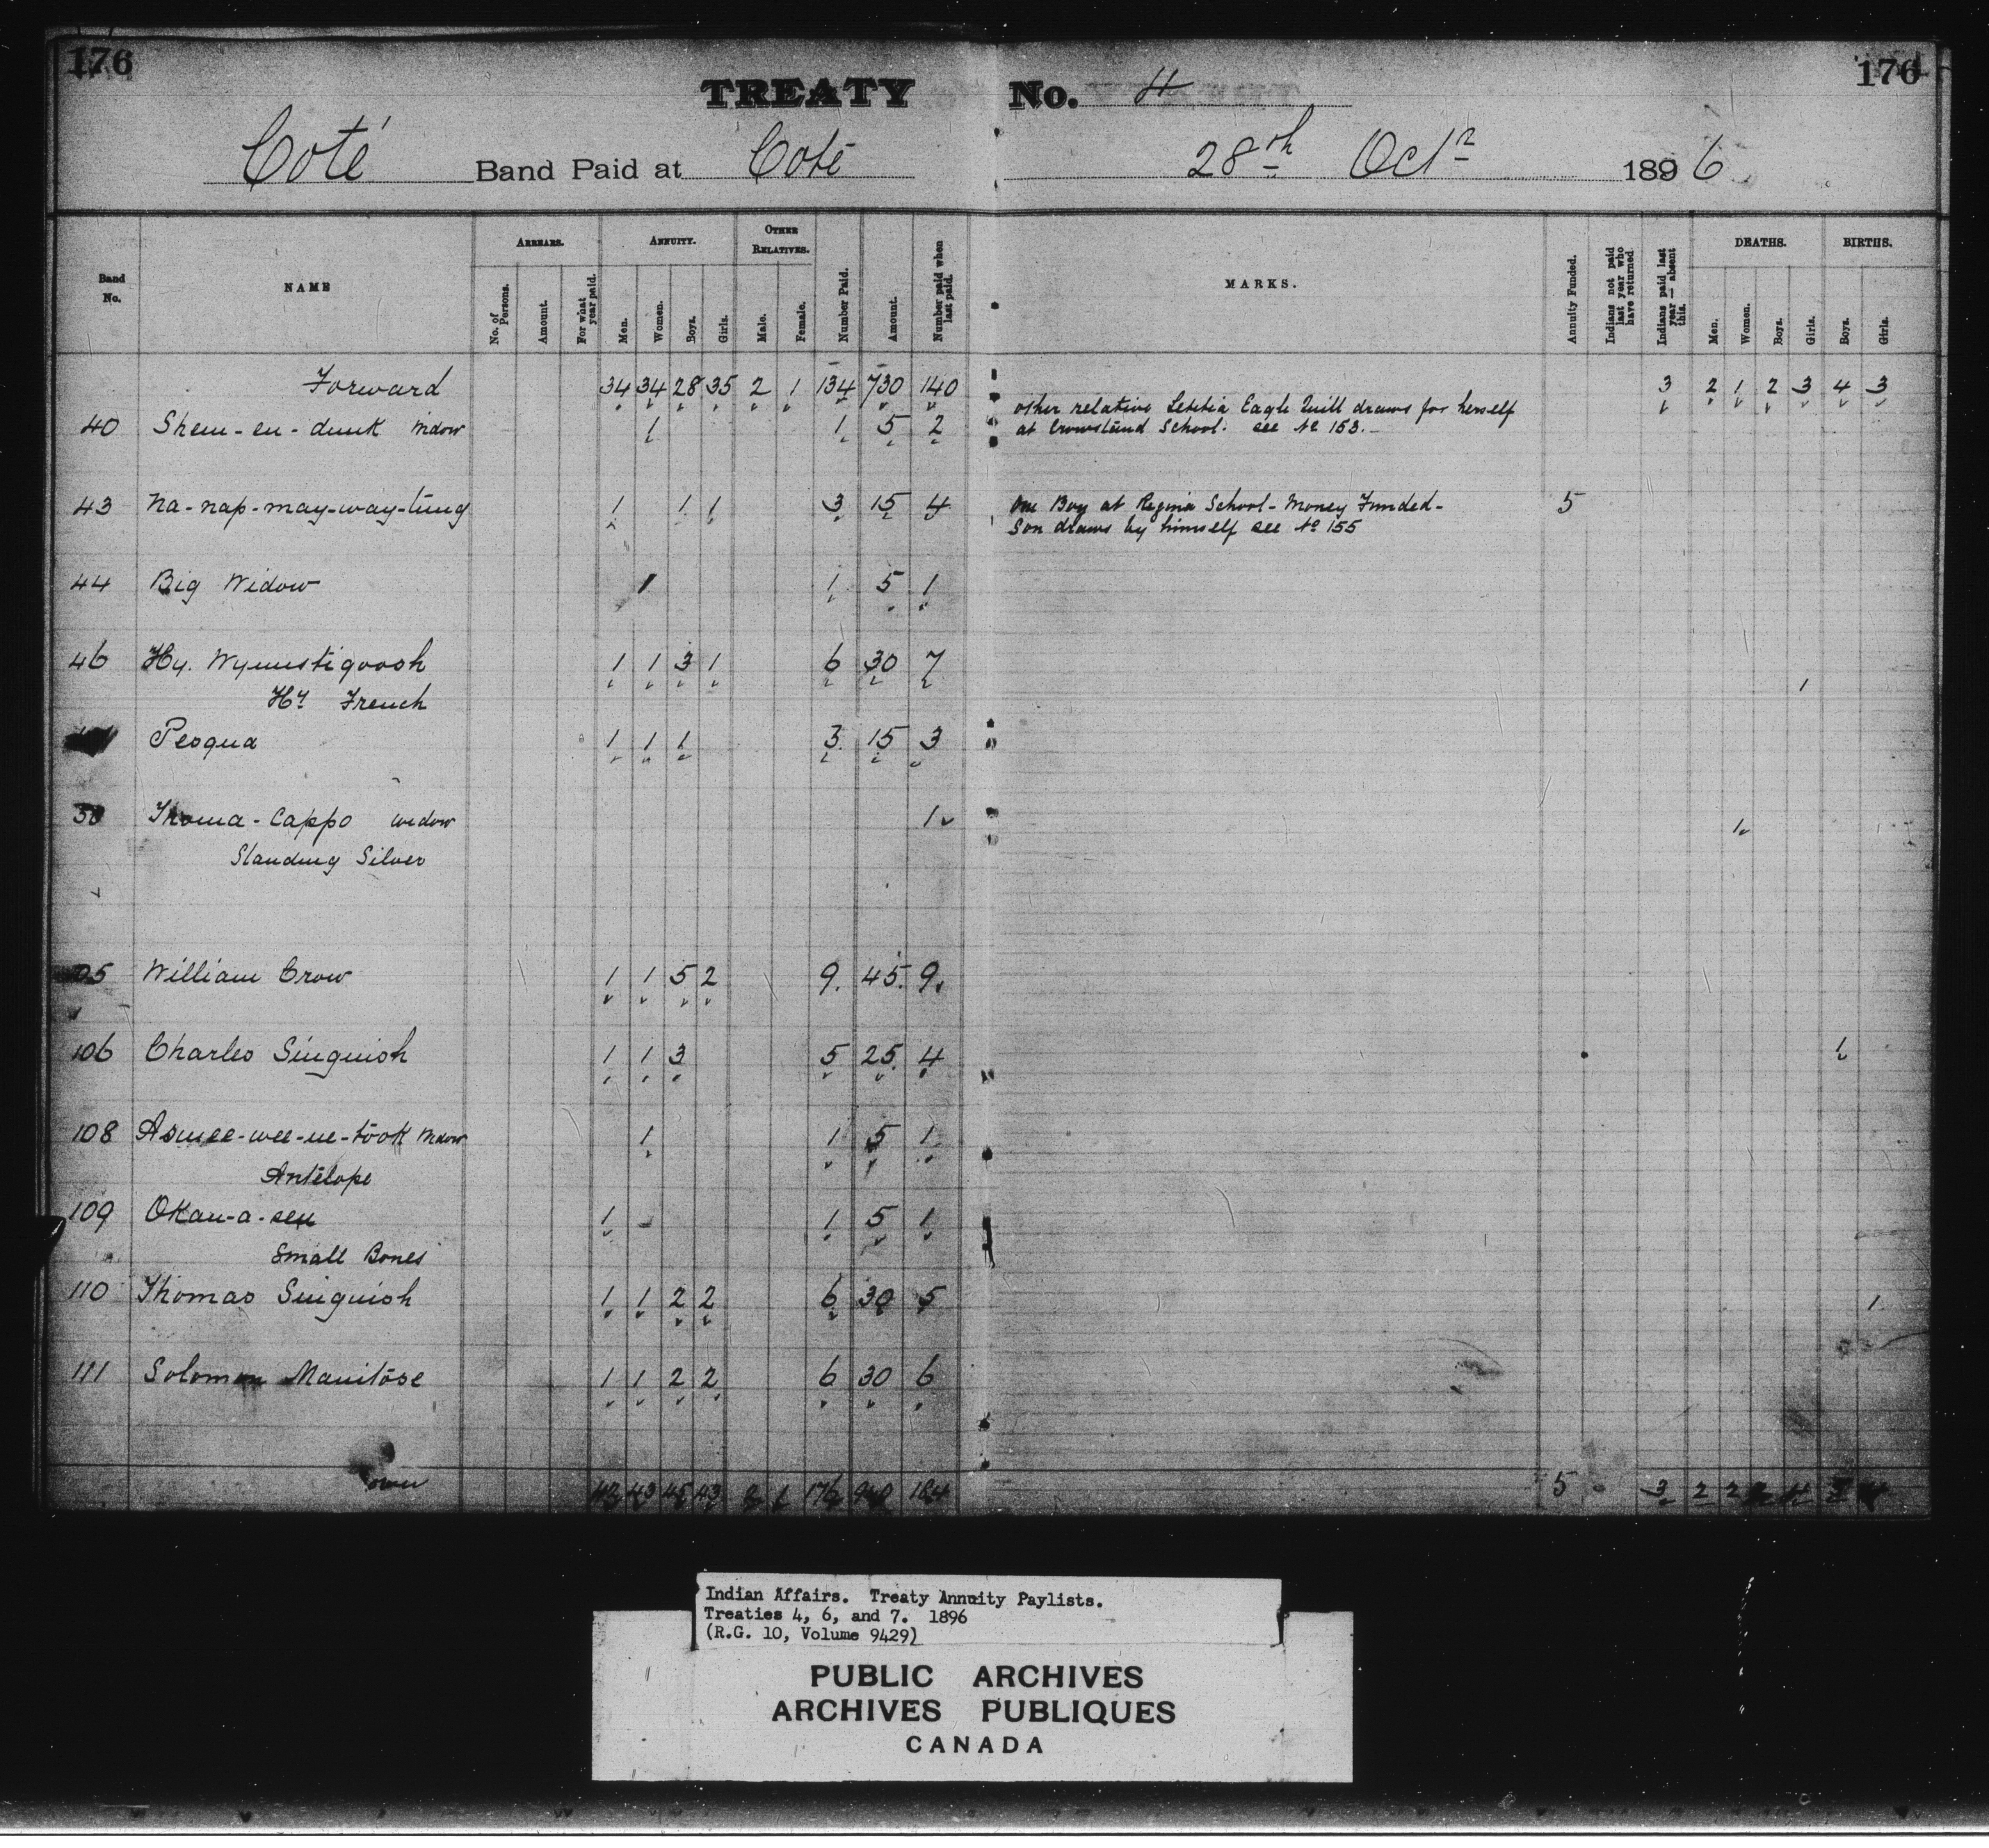 176 176
TREATY No. 4
Coté Band Paid at Coté 28th Octr 1896
Band No. NAME ARREARS. No. of Persons. Amount. For what year paid. ANNUITY. Men. Women. Boys. Girls. OTHER RELATIVES. Male. Female. Number Paid. Amount. Number paid when last paid. MARKS. Annuity Funded. Indians not paid last year who have returned Indians paid last year — absent this. DEATHS. Men. Women. Boys. Girls. BIRTHS. Boys. Girls.
Forward 34 34 28 35 2 1 134 730 140 3 2 1 2 3 4 3
other relative Letitia Eagle Quill draws for herself
40 Shem-en-duuk Widow 1 1 5 2 at Crowstand School. see No 153.
43 Na-nap-may-way-tung 1 1 1 3 15 4 One Boy at Regina School - Money Funded - 5
Son draws by himself see No 155
44 Big Widow 1 1 5 1
46 Hy. Wymistigoosh 1 1 3 1 6 30 7 1
Hy French
Peoqua 1 1 1 3 15 3
Thoma-Cappo widow 1 1
Standing Silver
William Crow 1 1 5 2 9. 45. 9.
106 Charles Singuish 1 1 3 5 25. 4 1
108 Asmee-wee-ne-took Widow 1 1 5 1
Antelope
109 Okan-a-sen 1 1 5 1
Small Bones
110 Thomas Singuish 1 1 2 2 6 30 5 1
111 Solomon Manitose 1 1 2 2 6 30 6
over 42 43 45 43 2 1 176 940 184 5 3 2 2 2 4 5 4
Indian Affairs. Treaty Annuity Paylists.
Treaties 4, 6, and 7. 1896
(R.G. 10, Volume 9429)
PUBLIC ARCHIVES
ARCHIVES PUBLIQUES
CANADA